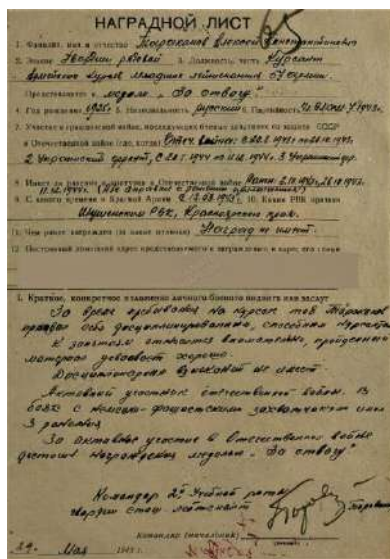 65
НАГРАДНОЙ ЛИСТ
1. Фамилия, имя и отчество Тараканов Алексей Константинович
2. Звание Гвардии рядовой 3. Должность, часть Курсант
Армейских курсов младших лейтенантов 57 армии
Представляется к медаль „За отвагу“
4. Год рождения 1925 г. 5. Национальность русский 6. Партийность
7. Участие в гражданской войне, последующих боевых действиях по защите СССР
и Отечественной войне (где, когда)
2 Украинский фронт, 3 Украинский фр.
8. Имеет ли ранения и контузии в Отечественной войне
9. С какого времени в Красной Армии 10. Каким РВК призван
РВК, Красноярского края.
11. Чем ранее награжден (за какие отличия) Наград не имеет.
12. Постоянный домашний адрес представляемого к награждению и адрес его семьи
I. Краткое, конкретное изложение личного боевого подвига или заслуг
За время пребывания на курсах тов Тараканов
проявил себя дисциплинированным, способным курсантом
К занятиям относится внимательно, пройденный
материал усваивает хорошо.
Дисциплинарных взысканий не имеет.
Активный участник отечественной войны. В
боях с немецко-фашистскими захватчиками имеет
3 ранения
За активное участие в Отечественной войне
достоин награждения медалью „За отвагу“
Командир 2й Учебной роты
гвардии старш лейтенант
Командир (начальник)
29 Мая 1945 г.